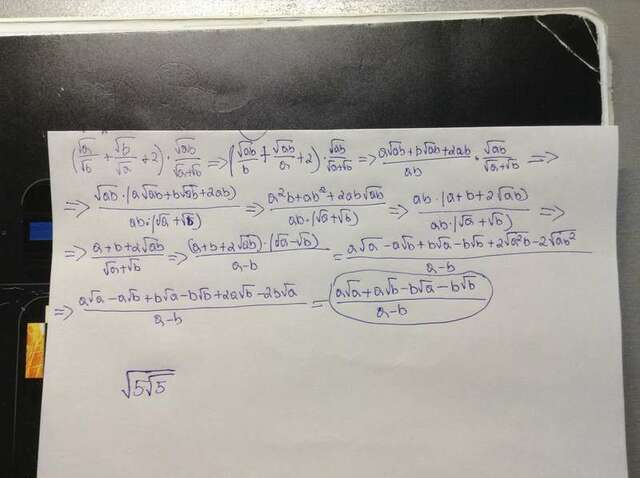 (√a/√b + √b/√a + 2) · √ab/(√a+√b) => (√ab/b + √ab/a + 2) · √ab/(√a+√b) => (a√ab+b√ab+2ab)/ab · √ab/(√a+√b) =>
=> √ab·(a√ab+b√ab+2ab)/(ab·(√a+√b)) => (a²b+ab²+2ab√ab)/(ab·(√a+√b)) => ab·(a+b+2√ab)/(ab·(√a+√b)) =>
=> (a+b+2√ab)/(√a+√b) => (a+b+2√ab)·(√a-√b)/(a-b) = (a√a-a√b+b√a-b√b+2√a²b-2√ab²)/(a-b)
=> (a√a-a√b+b√a-b√b+2a√b-2b√a)/(a-b) = (a√a+a√b-b√a-b√b)/(a-b)
√5√5